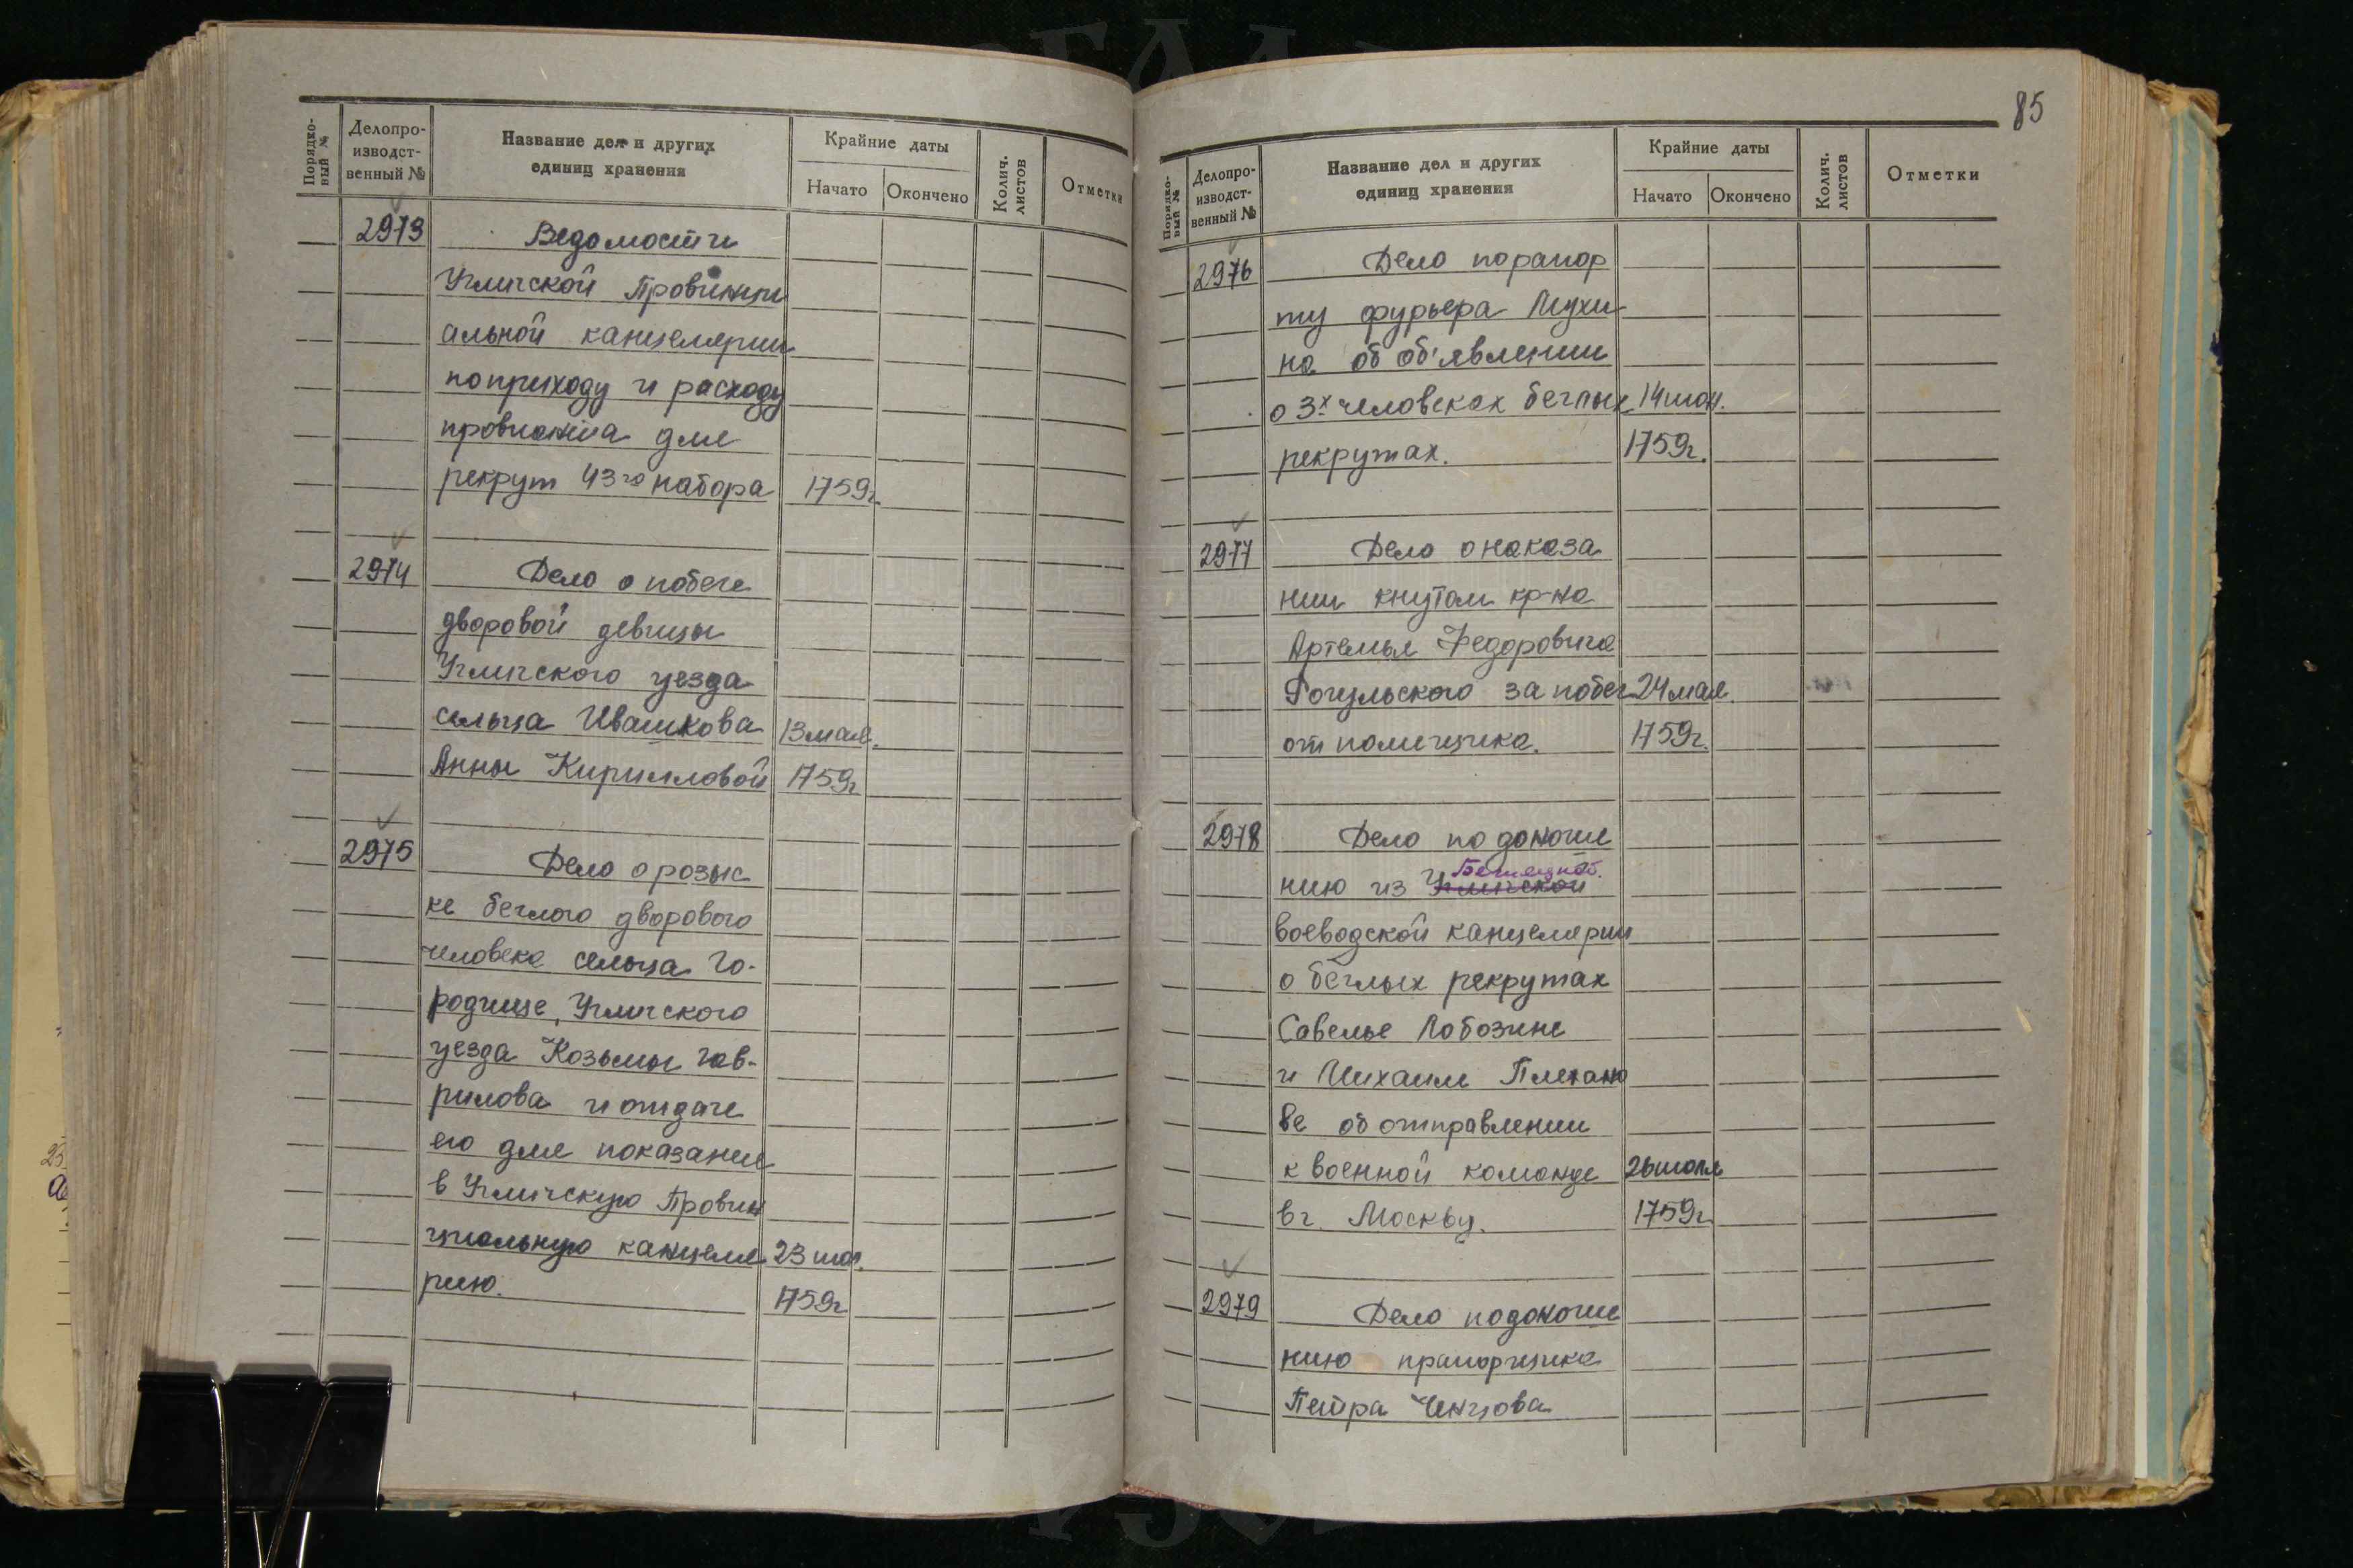 Порядко-
вый №
Делопро-
изводст-
венный №
Название дел и других
единиц хранения
Крайние даты
Начато
Окончено
Колич.
листов
Отметки
2973
Ведомости
Угличской Провинци
альной канцелярии
по приходу и расходу
провианта для
рекрут 43го набора 1759г.
2974
Дело о побеге
дворовой девицы
Угличского уезда
сельца Ивашкова 13 мая.
Анны Кирилловой 1759г
2975
Дело о розыс
ке беглого дворового
человека сельца Го-
родище, Угличского
уезда Козьмы Гав-
рилова и отдаче
его для показания
в Угличскую Провин
циальную канцеля 23
рию. 1759г
85
Порядко-
вый №
Делопро-
изводст-
венный №
Название дел и других
единиц хранения
Крайние даты
Начато
Окончено
Колич.
листов
Отметки
2976
Дело по рапор
ту фурьера Мухи
на об об'явлении
о 3х человеках беглых 14
рекрутах. 1759г.
2977
Дело о наказа
нии кнутом кр-на
Артемья Федоровича
Гогульского за побег 24 мая.
от помещика. 1759г.
2978
Дело по доноше
нию из Угличской
Бежецкой.
воеводской канцелярии
о беглых рекрутах
Савелье Лобозине
и Михаиле Плехано
ве об отправлении
к военной команде 26 июля
в г. Москву. 1759г
2979
Дело по доноше
нию прапорщика
Петра Ченцова